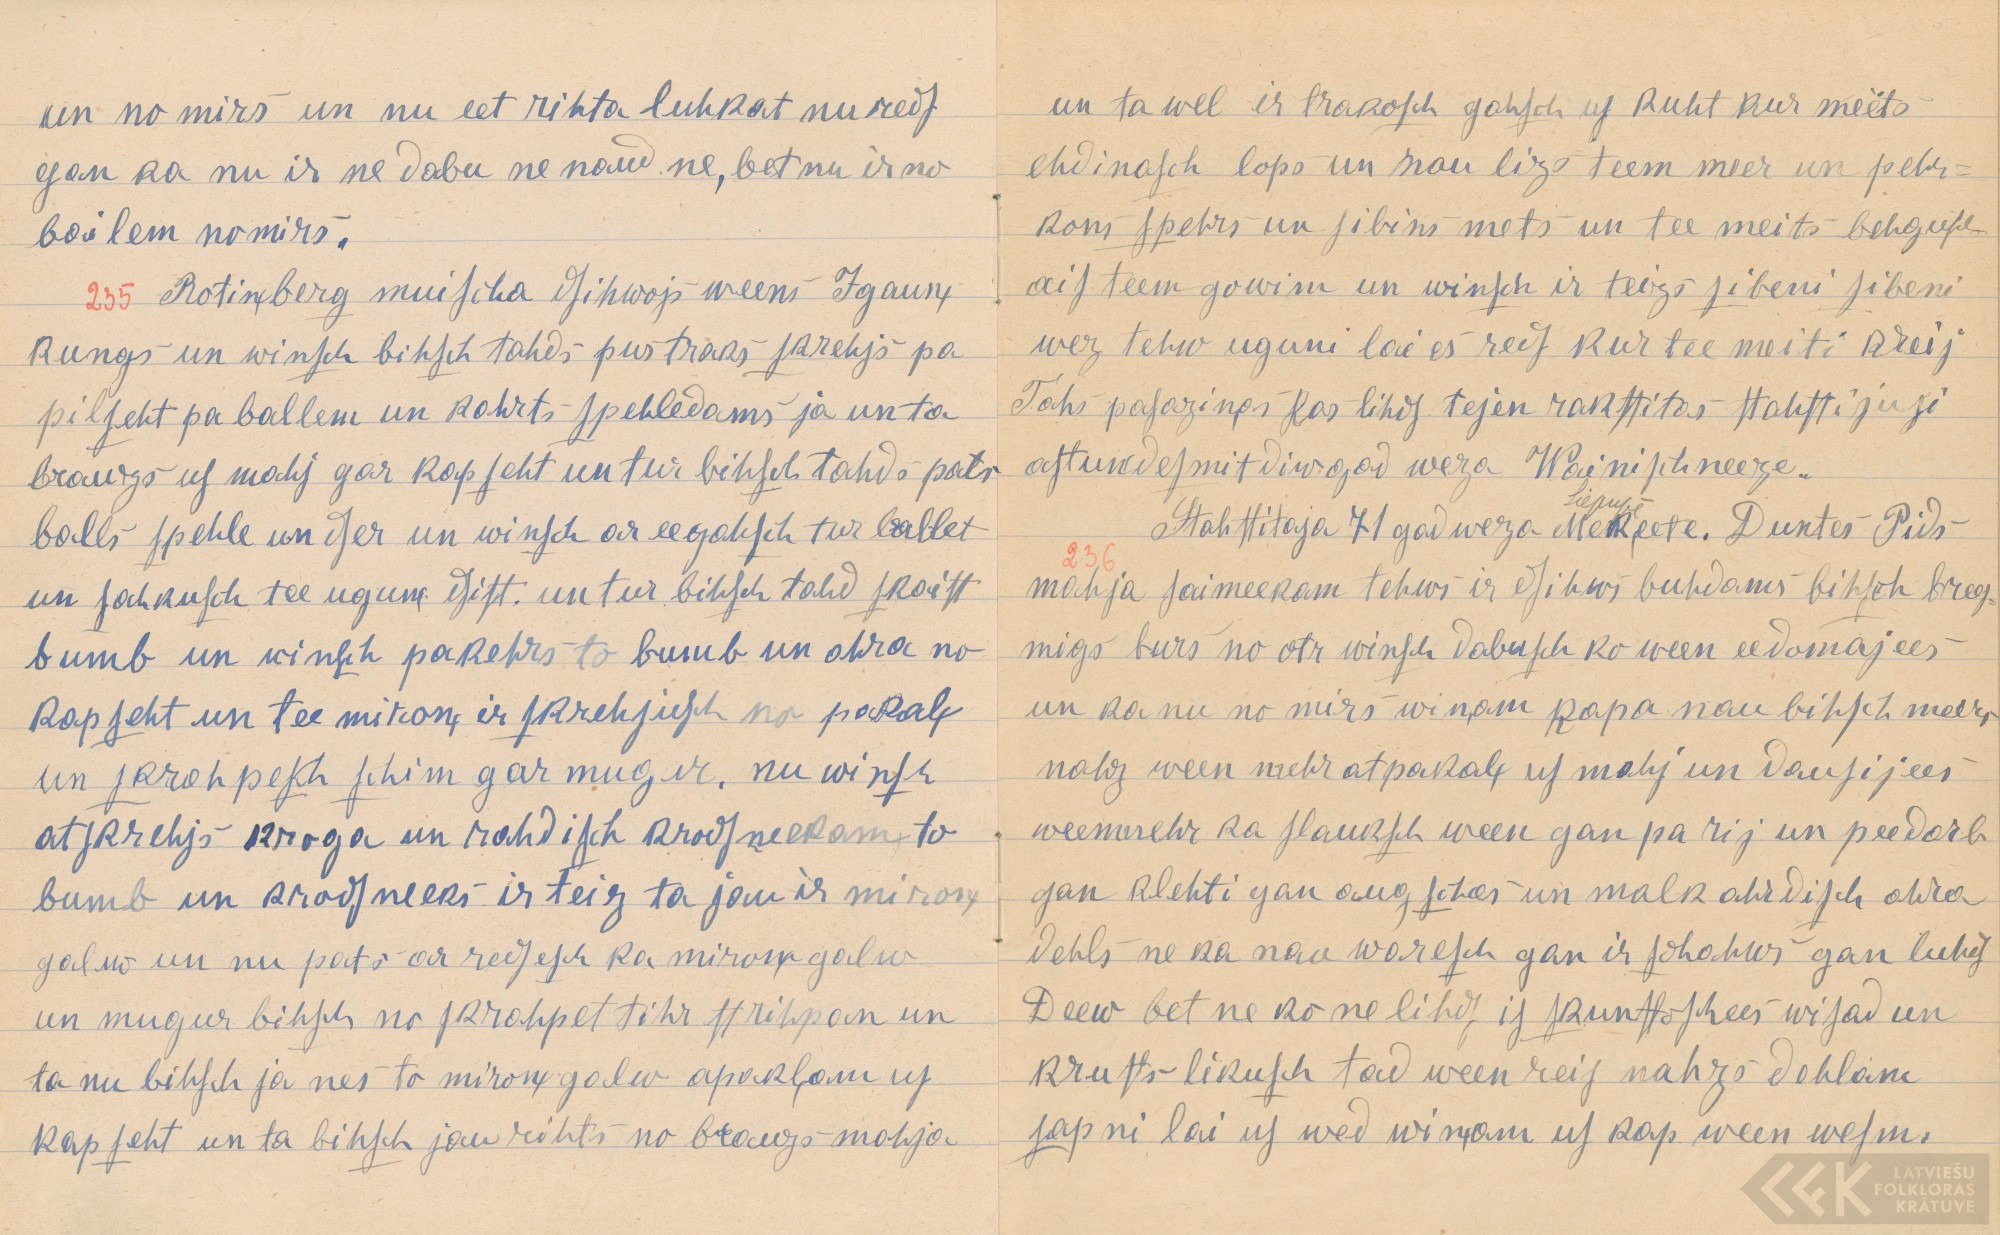 un no mirs un nu eet rihta luhkat nu redſ
gan ka nu ir ne dabu ne naud ne, bet nu ir no
bailem nomirs.
235 Rotinberg muiſcha dſihwojs weens Igauņ
kungs un winſch bihſch tahds pustraks ſkrehjs pa
pilſeht pa ballem un kahrts ſpehledams ja un ta
brauzs uſ mahj gar kapſeht un tur bihſch tahds pats
balls ſpehle un dſer un winſch ar eegahſch tur ballet
un ſahkuſch tee ugune dſiſt. un tur bihſch tahd ſkaiſt
bumb un winſch pakehrs to bumb un ahra no
kapſeht un tee miroņ ir ſkrehjuſch no pakaļ
un ſkrahpeſch ſchim gar mugur. nu winſch
atſkrehjs kroga un rahdiſch krodſneekam to
bumb un krodſneeks ir teiz ta jau ir miroņ
galw un nu pats ar redſeſch ka miroņ galw
un mugur bihſch no ſkrahpet tihr ſtrihpan un
ta nu bihſch ja nes to miroņ galw apakļam uſ
kapſeht un ta bihſch jau rihts no brauzs mahja
un ta wel ir trakoſch gahſch uſ kuht kur meits
ehdinaſch lops un nau lizs teem meer un pehr=
kons ſpehrs un ſibins mets un tee meits behguſch
aiſ teem gowim un winſch ir teizs ſibeni ſibeni
wez tehw uguni lai es redſ kur tee meiti kreij
Tahs paſaziņas kas lihdſ tejen rakſtitas ſtahſtijuſi
aſtundeſmit diwgad weza Wainiſchneeze.
Liepupē
Stahſtitaja 71 gad weza Mekeete. Duntes Pids
236
mahja ſaimeekam tehws ir dſihws buhdams bihſch breeſ=
migs burs no otr winſch dabuſch ko ween eedomajees
un ka nu no mirs winam kapa nau bihſch meers
nahz ween mehr atpakaļ uſ mahj un dauſijees
weenmehr ka ſlaukſch ween gan pa rij un peedarb
gan klehti gan augſchas un malk ahrdiſch ahra
dehls ne ka nau wareſch gan ir ſchahws gan luhdſ
Deew bet ne ko ne lihdſ, iſ ſkunſtoſchees wiſad un
kruſts likuſch tad ween reiſ nahzs dehlam
ſapni lai uſ wed winam uſ kap ween weſm.
LATVIEŠU
FOLKLORAS
KRĀTUVE